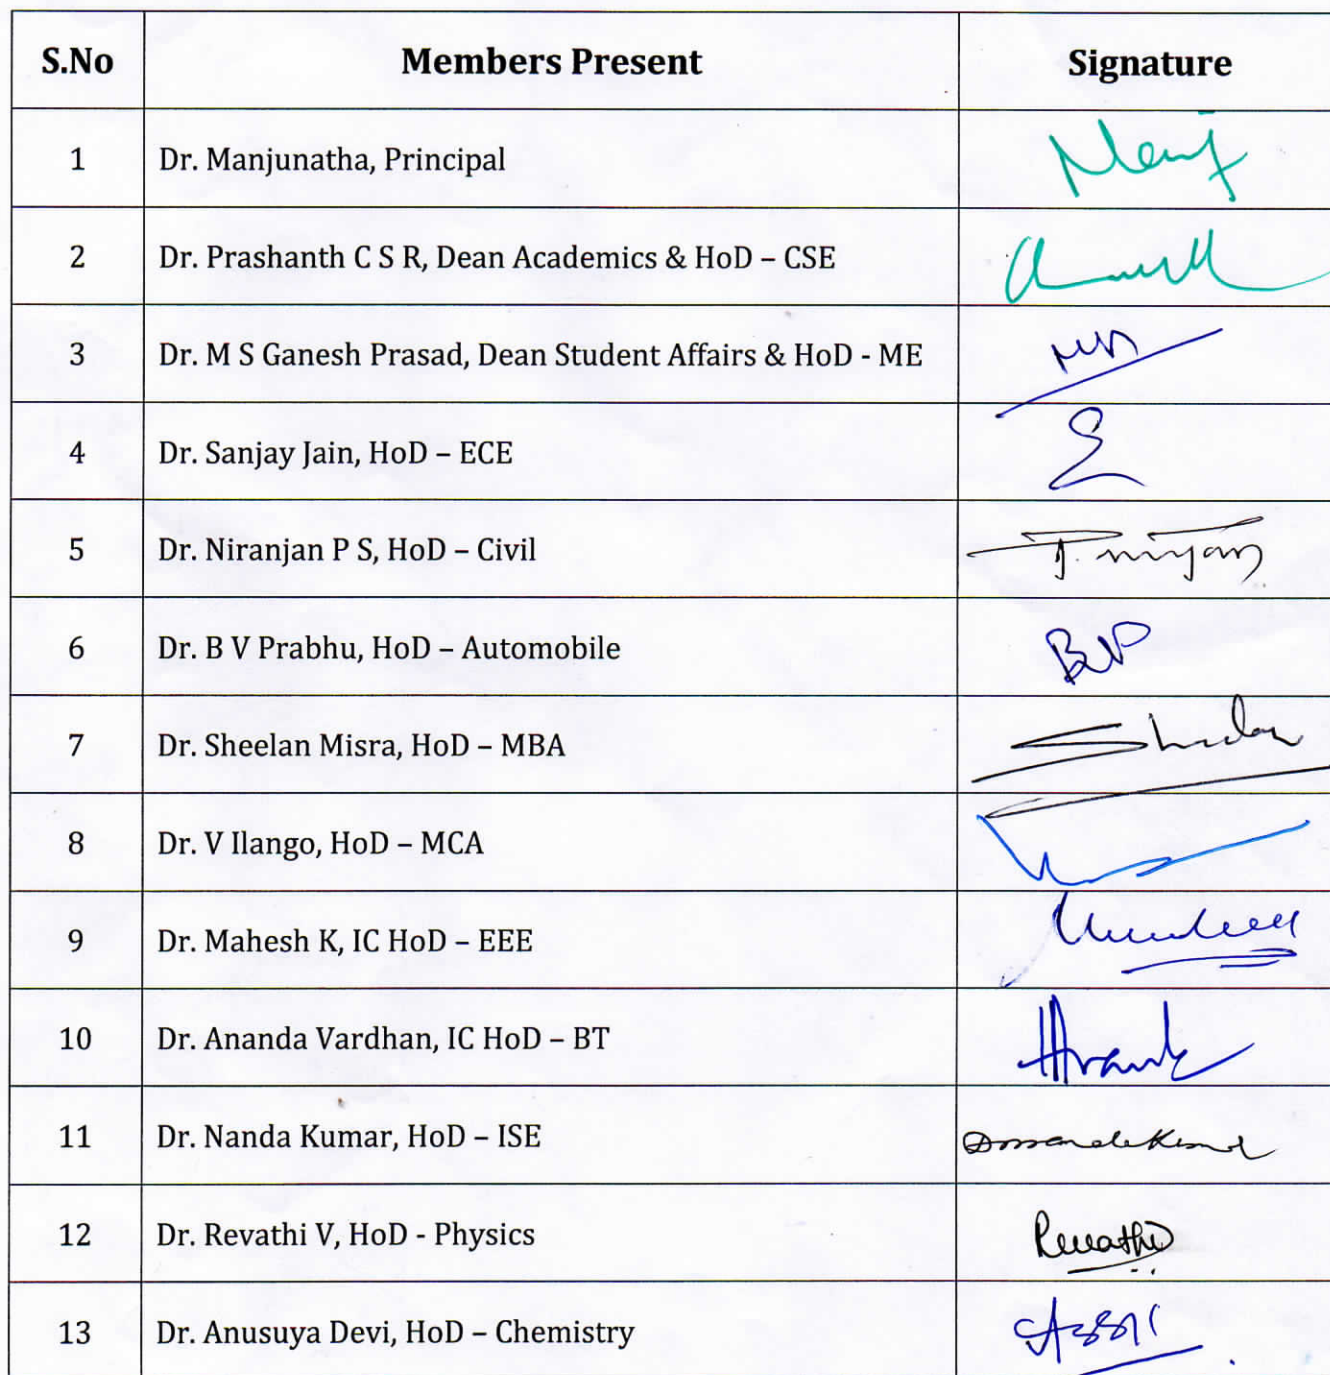 S.No Members Present Signature
1 Dr. Manjunatha, Principal
2 Dr. Prashanth C S R, Dean Academics & HoD – CSE
3 Dr. M S Ganesh Prasad, Dean Student Affairs & HoD - ME
4 Dr. Sanjay Jain, HoD – ECE
5 Dr. Niranjan P S, HoD – Civil
6 Dr. B V Prabhu, HoD – Automobile
7 Dr. Sheelan Misra, HoD – MBA
8 Dr. V Ilango, HoD – MCA
9 Dr. Mahesh K, IC HoD – EEE
10 Dr. Ananda Vardhan, IC HoD – BT
11 Dr. Nanda Kumar, HoD – ISE
12 Dr. Revathi V, HoD - Physics Revathi
13 Dr. Anusuya Devi, HoD – Chemistry